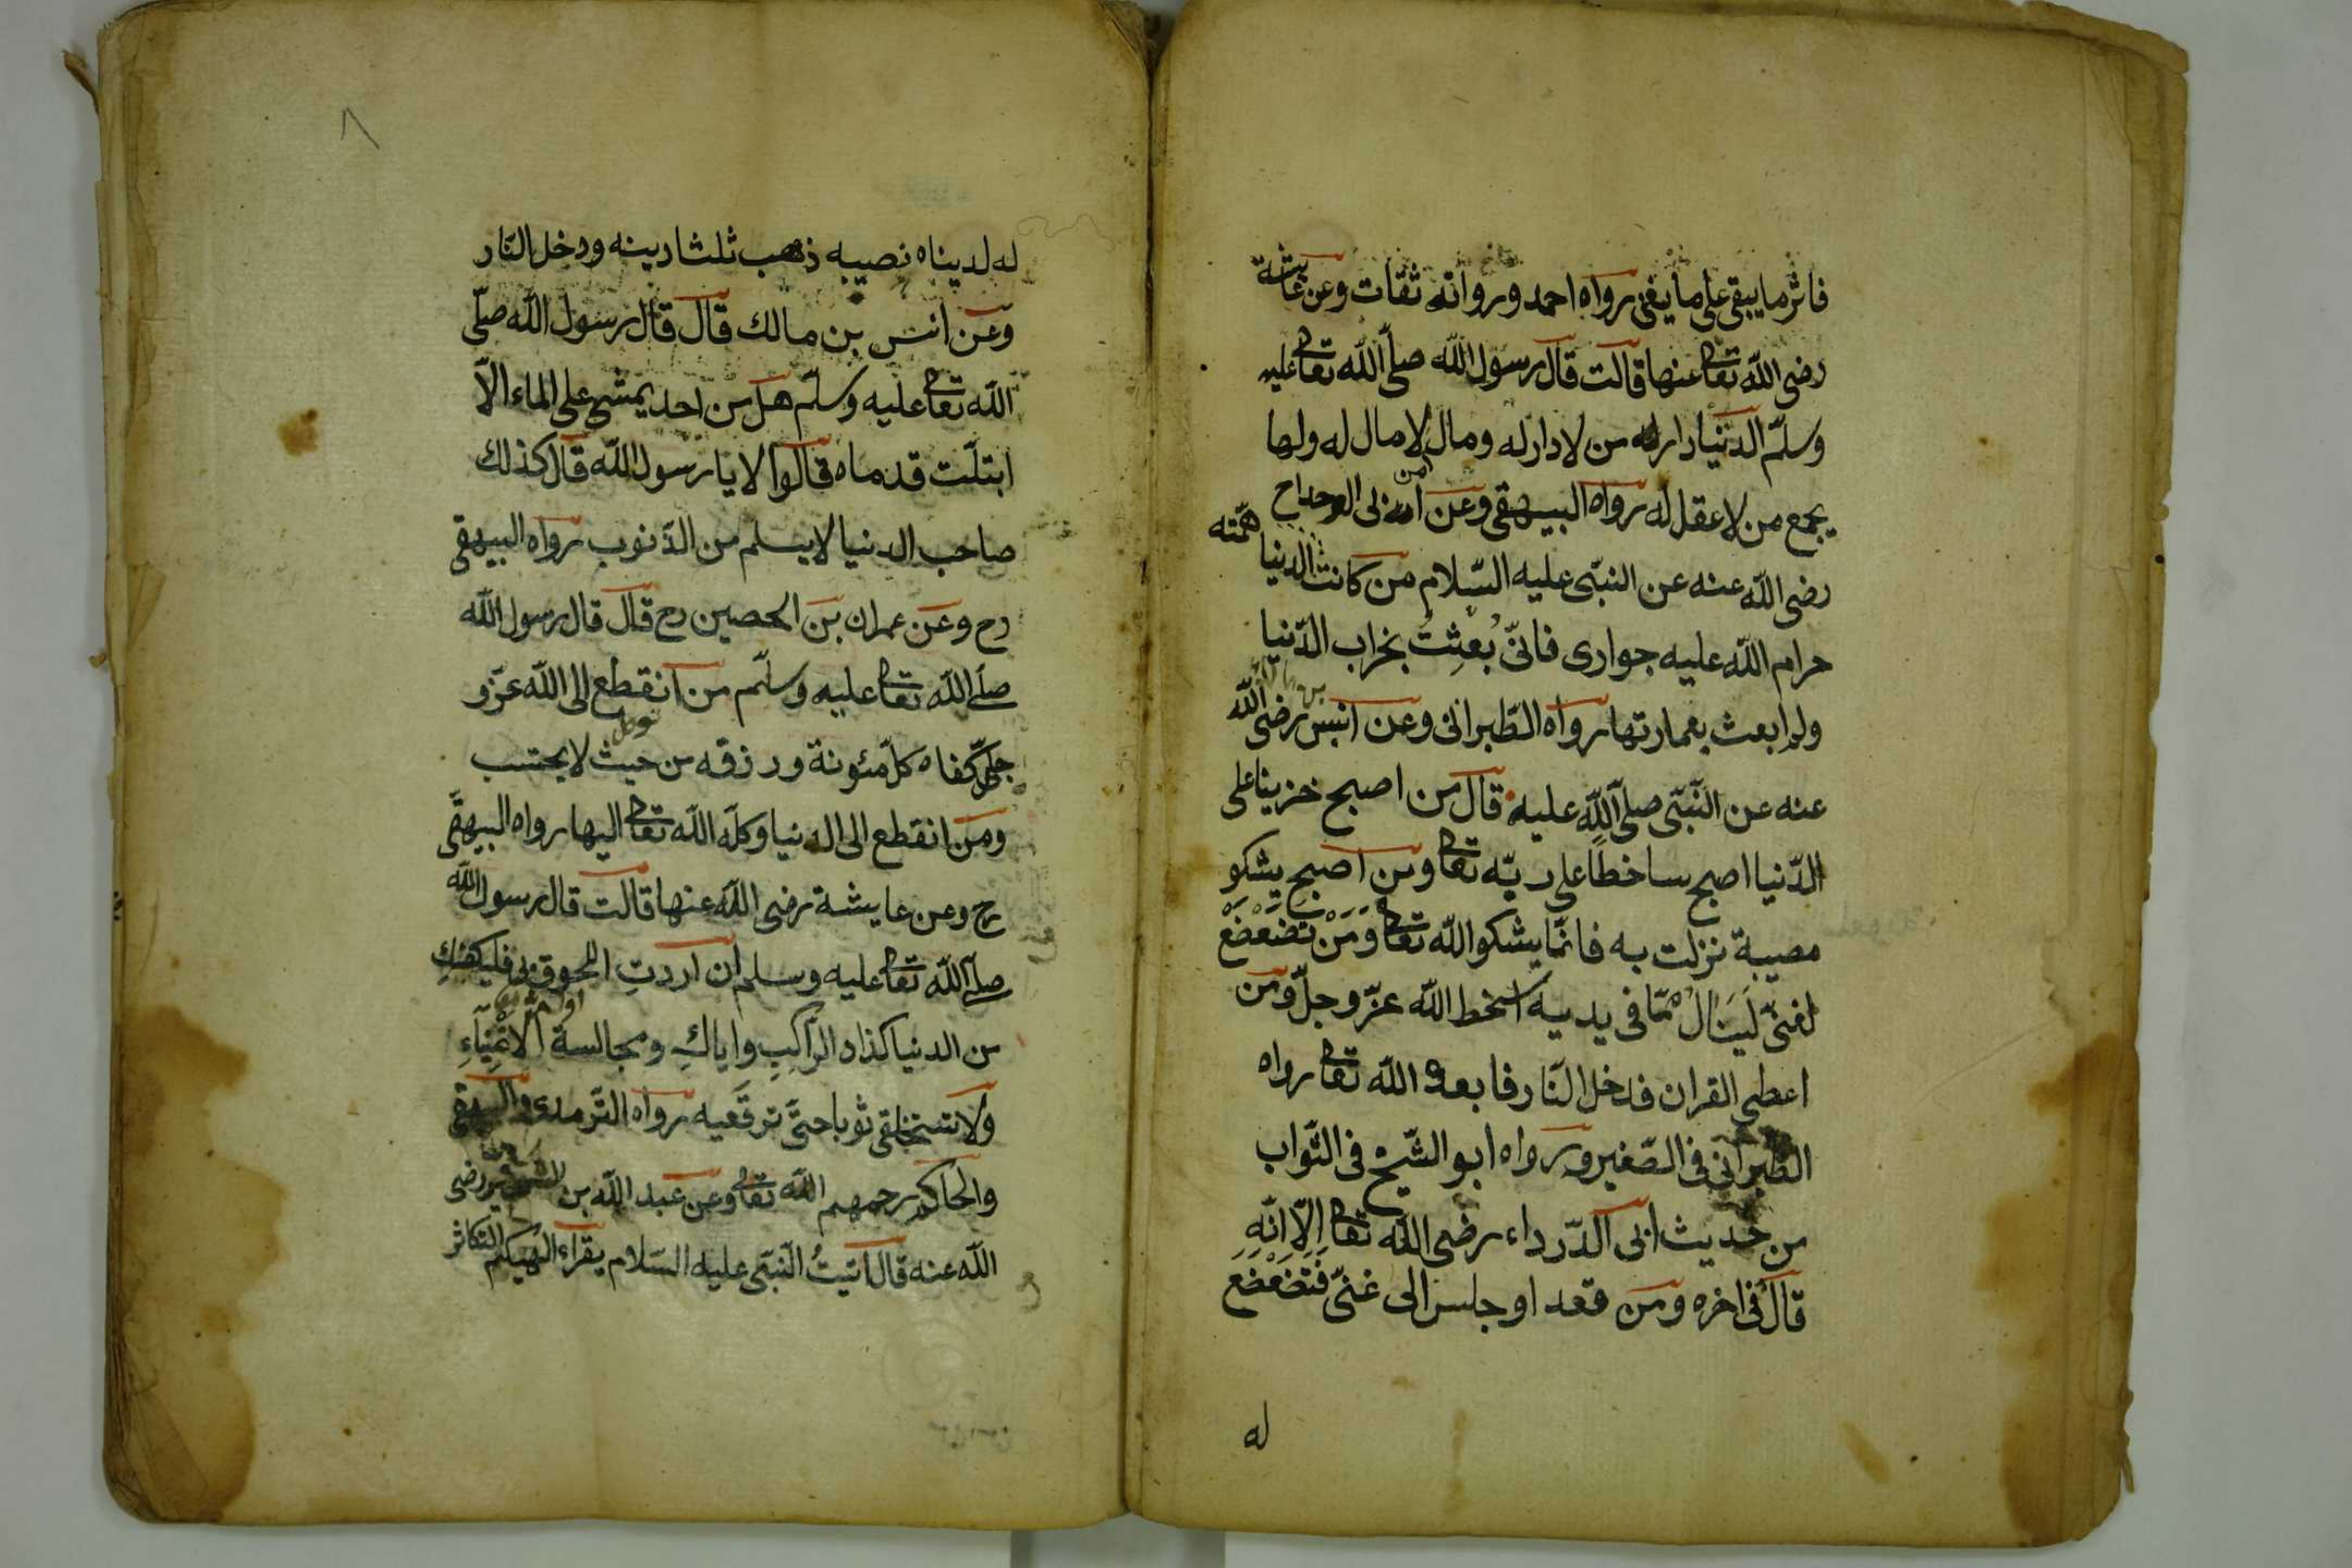 فاثر ما يبقى على ما يفنى رواه احمد ورواته ثقات وعن عائشة
رضى الله تعالى عنها قالت قال رسول الله صلى الله تعالى عليه
وسلم الدنيا دار من لا دار له ومال لا مال له ولها
من
يجمع من لا عقل له رواه البيهقى وعن ابى الدحداح
رضى الله عنه عن النبى عليه السلام من كانت الدنيا همته
حرام الله عليه جوارى فانى بُعِثتُ بخراب الدنيا
ولم ابعث بعمارتها رواه الطبرانى وعن انس رضى الله
عنه عن النبى صلى الله عليه قال من اصبح حزينا على
الدنيا اصبح ساخطًا على ربه تعالى ومن اصبح يشكو
مصيبة نزلت به فانما يشكو الله تعالى وَمَنْ تَضَعْضَعَ
لغنى لَيَنَالَ مما فى يديه اسخط الله عز وجل ومن
اعطى القران فدخل النار فابعده الله تعالى رواه
الطبرانى فى الصغير ورواه ابو الشيخ فى الثواب
من حديث ابى الدرداء رضى الله تعالى الا انه
قال فى اخره ومن قعد او جلس الى غنى فَتَضَعْضَعَ
له
٨
له لدنياه نصيبه ذهب ثلثا دينه ودخل النار
وعن انس بن مالك قال قال رسول الله صلى
الله تعالى عليه وسلم هل من احد يمشى على الماء الا
ابتلت قدماه قالوا لا يا رسول الله قال كذلك
صاحب الدنيا لا يسلم من الذنوب رواه البيهقى
رح وعن عمران بن الحصين رح قال قال رسول الله
صلى الله تعالى عليه وسلم من انقطع الى الله عز و
جل كفاه كل مئونة ورزقه من حيث لا يحتسب
ومن انقطع الى الدنيا وكله الله تعالى اليها رواه البيهقى
رح وعن عايشة رضى الله عنها قالت قال رسول الله
صلى الله تعالى عليه وسلم ان اردتِ اللحوق بى فليكفكِ
من الدنيا كذاد الراكبِ واياكِ ومجالسة الاغنياءِ
ولا تستخلقى ثوبا حتى ترقعيه رواه الترمدى والبيهقى
والحاكم رحمهم الله تعالى وعن عبد الله بن الشخير رضى
الله عنه قال اتيتُ النبى عليه السلام يقراء الهيكم التكاثر